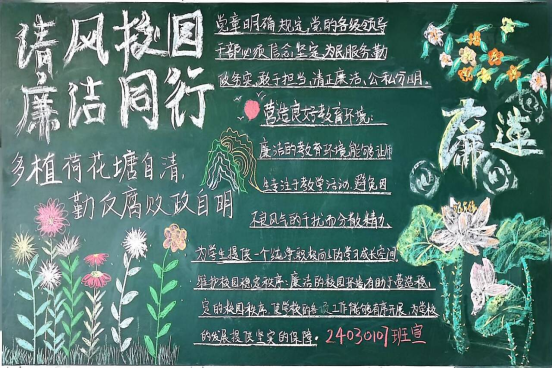 清风校园
廉洁同行
多植荷花塘自清,
勤反腐败政自明
党章明确规定,党的各级领导
干部必须信念坚定、为民服务、勤
政务实、敢于担当、清正廉洁、公私分明.
营造良好教育环境:
廉洁的教育环境能够让师
生专注于教学活动,避免因
不良风气的干扰而分散精力
为学生提供一个 学习成长空间
维护校园稳定秩序:廉洁的校园环境有助于营造稳
定的校园秩序,使学校的各项工作能够有序开展,为学校
的发展提供坚实的保障。
24030107班宣
廉莲